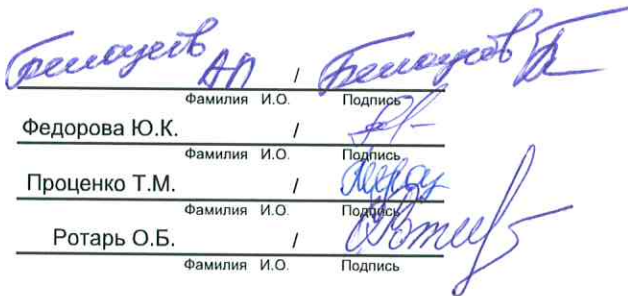 Белоусов АП / Белоусов
Фамилия И.О. Подпись
Федорова Ю.К. /
Фамилия И.О. Подпись
Проценко Т.М. /
Фамилия И.О. Подпись
Ротарь О.Б. /
Фамилия И.О. Подпись